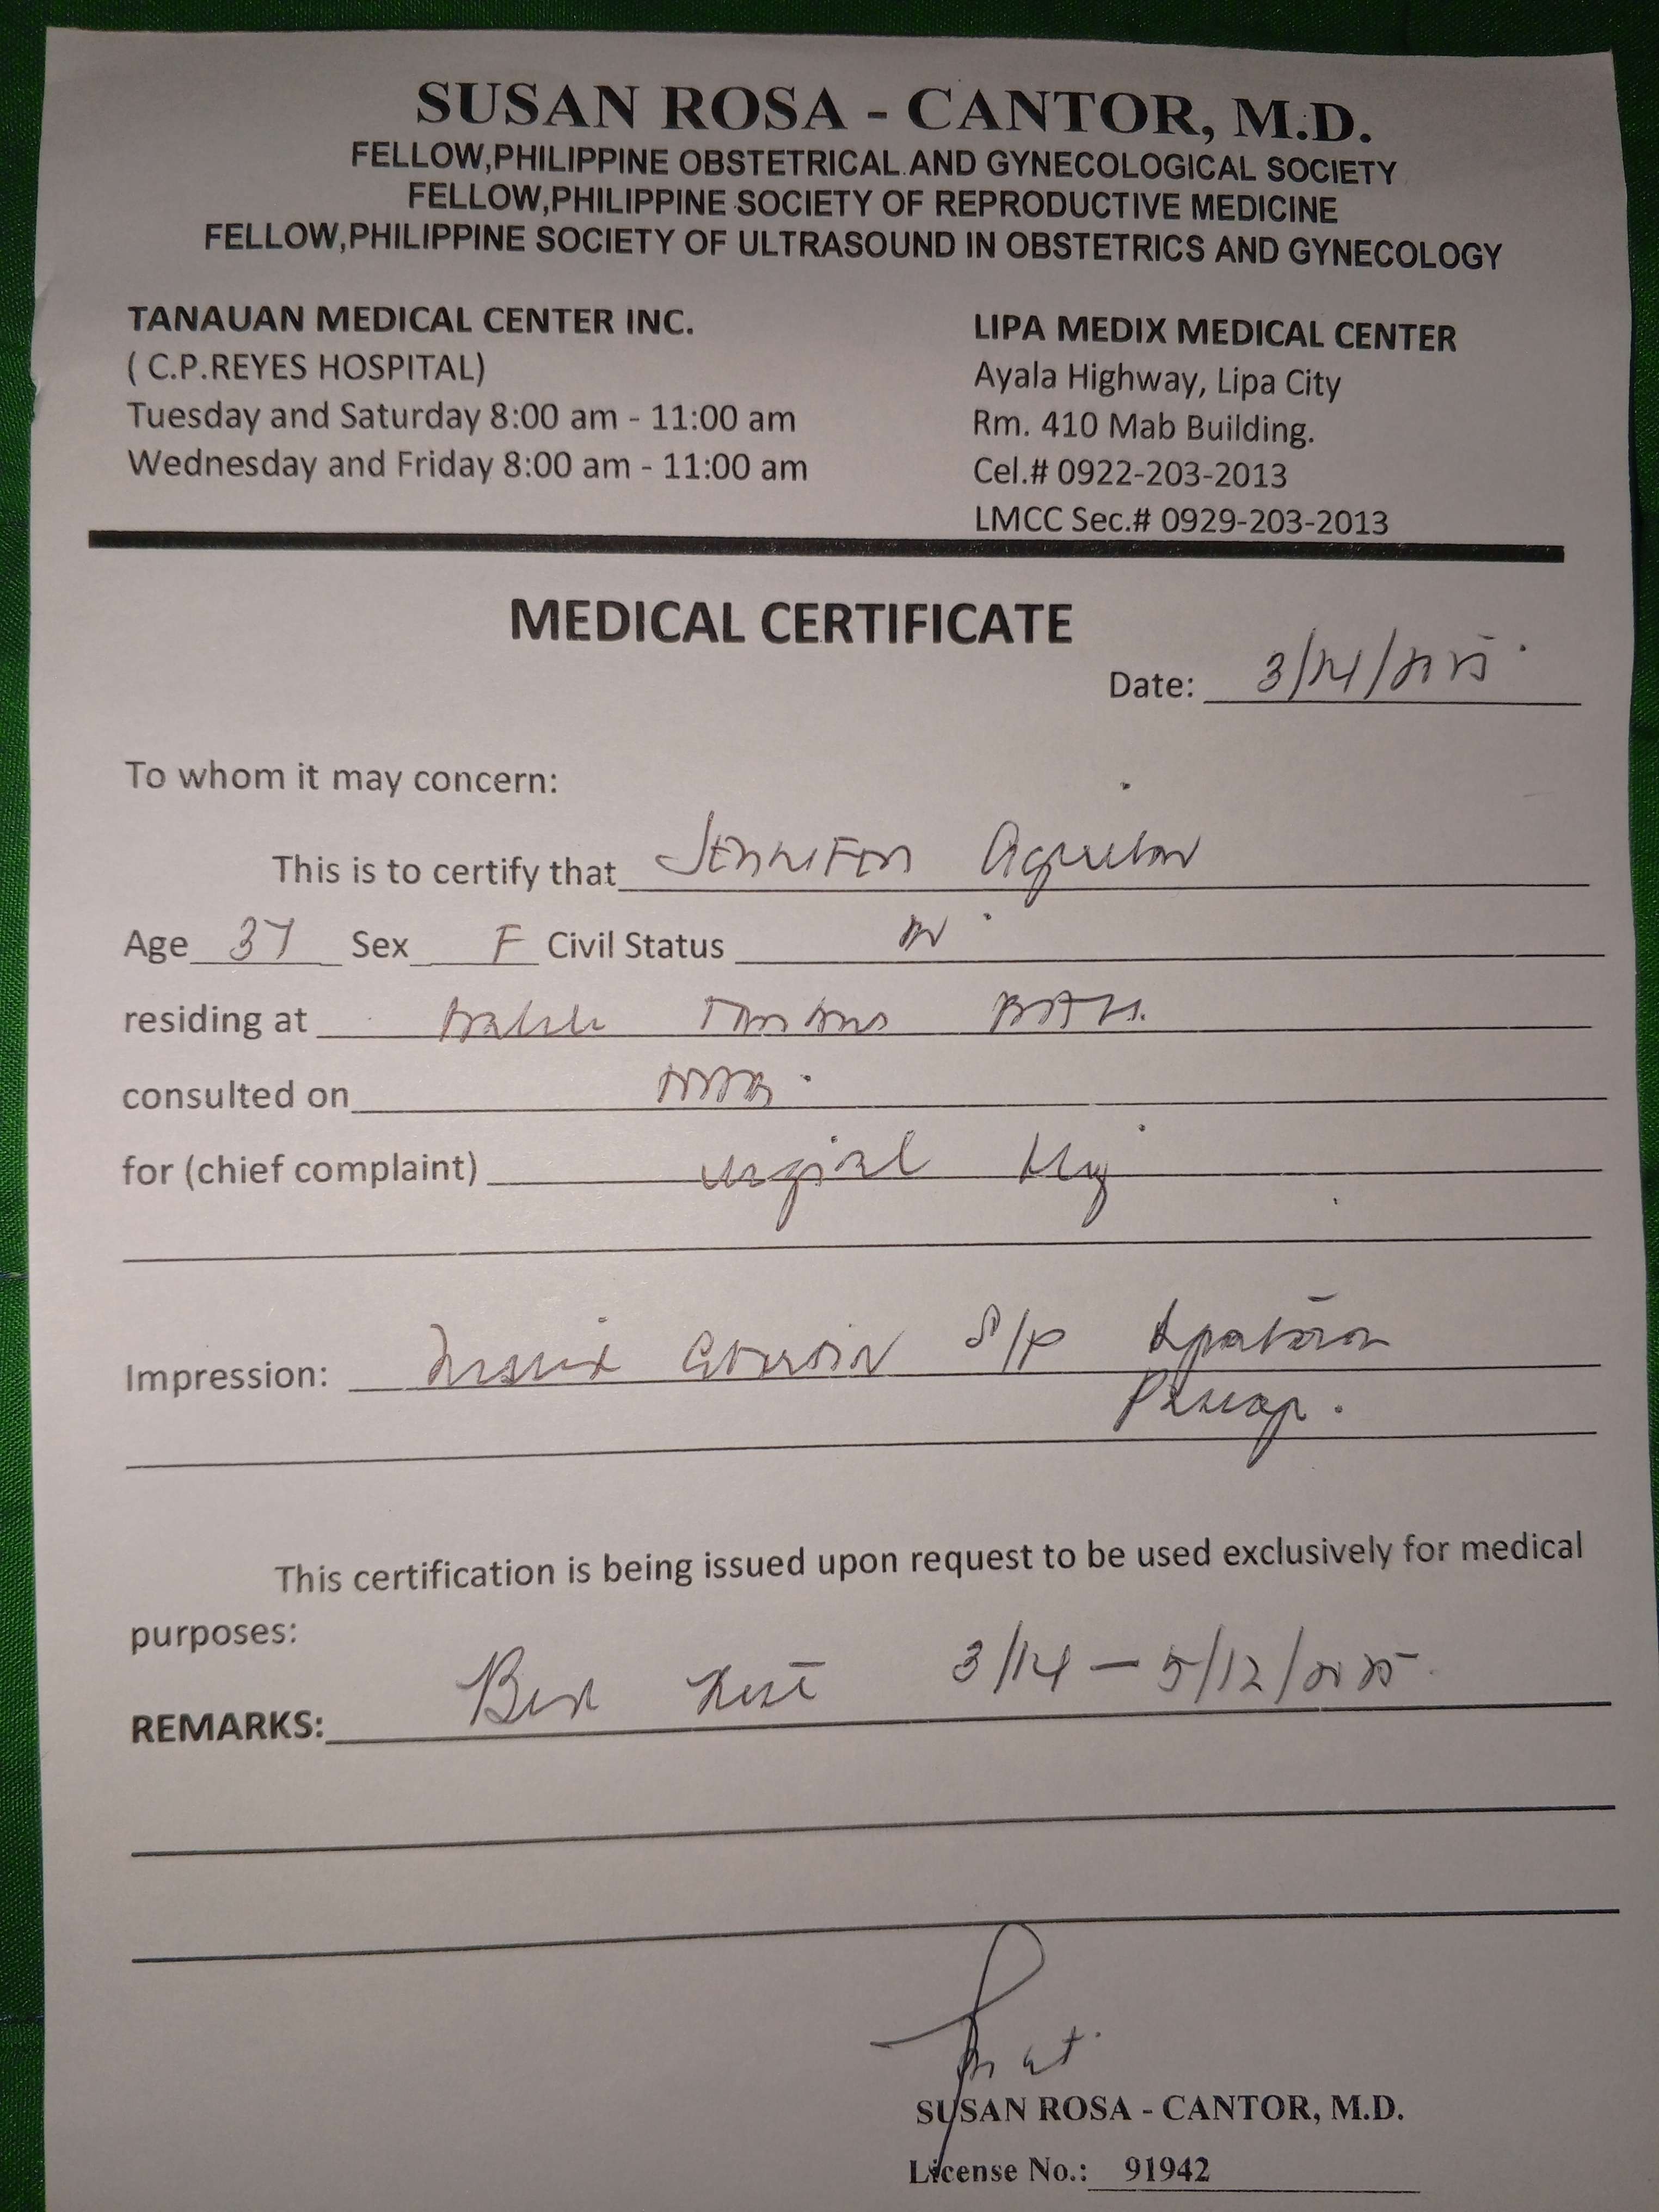 SUSAN ROSA - CANTOR, M.D.
FELLOW,PHILIPPINE OBSTETRICAL AND GYNECOLOGICAL SOCIETY
FELLOW,PHILIPPINE SOCIETY OF REPRODUCTIVE MEDICINE
FELLOW,PHILIPPINE SOCIETY OF ULTRASOUND IN OBSTETRICS AND GYNECOLOGY
TANAUAN MEDICAL CENTER INC.
( C.P.REYES HOSPITAL)
Tuesday and Saturday 8:00 am - 11:00 am
Wednesday and Friday 8:00 am - 11:00 am
LIPA MEDIX MEDICAL CENTER
Ayala Highway, Lipa City
Rm. 410 Mab Building.
Cel.# 0922-203-2013
LMCC Sec.# 0929-203-2013
MEDICAL CERTIFICATE
Date: 3/14/2025
To whom it may concern:
This is to certify that Jennifer Aguilar
Age 37 Sex F Civil Status
residing at
consulted on
for (chief complaint) vaginal
Impression: S/P
This certification is being issued upon request to be used exclusively for medical
purposes:
REMARKS: Bed Rest 3/14 - 5/12/2025
SUSAN ROSA - CANTOR, M.D.
License No.: 91942